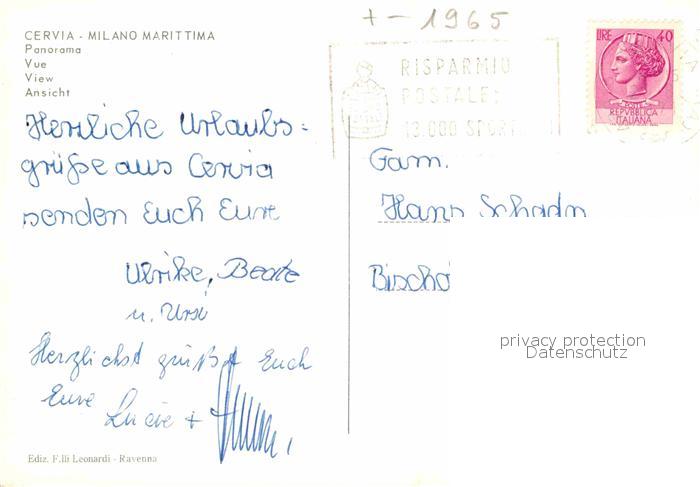 CERVIA - MILANO MARITTIMA
Panorama
Vue
View
Ansicht
+ - 1965
RISPARMIO
POSTALE:
13.000 SPORT
LIRE 40
POSTE
REPVBBLICA
ITALIANA
Herzliche Urlaubs=
grüße aus Cervia
senden Euch Eure
Ulrike, Beate
u. Ursi
Herzlichst grüßt Euch
Eure Lucie +
Fam.
Hans
Ediz. F.lli Leonardi - Ravenna
privacy protection
Datenschutz